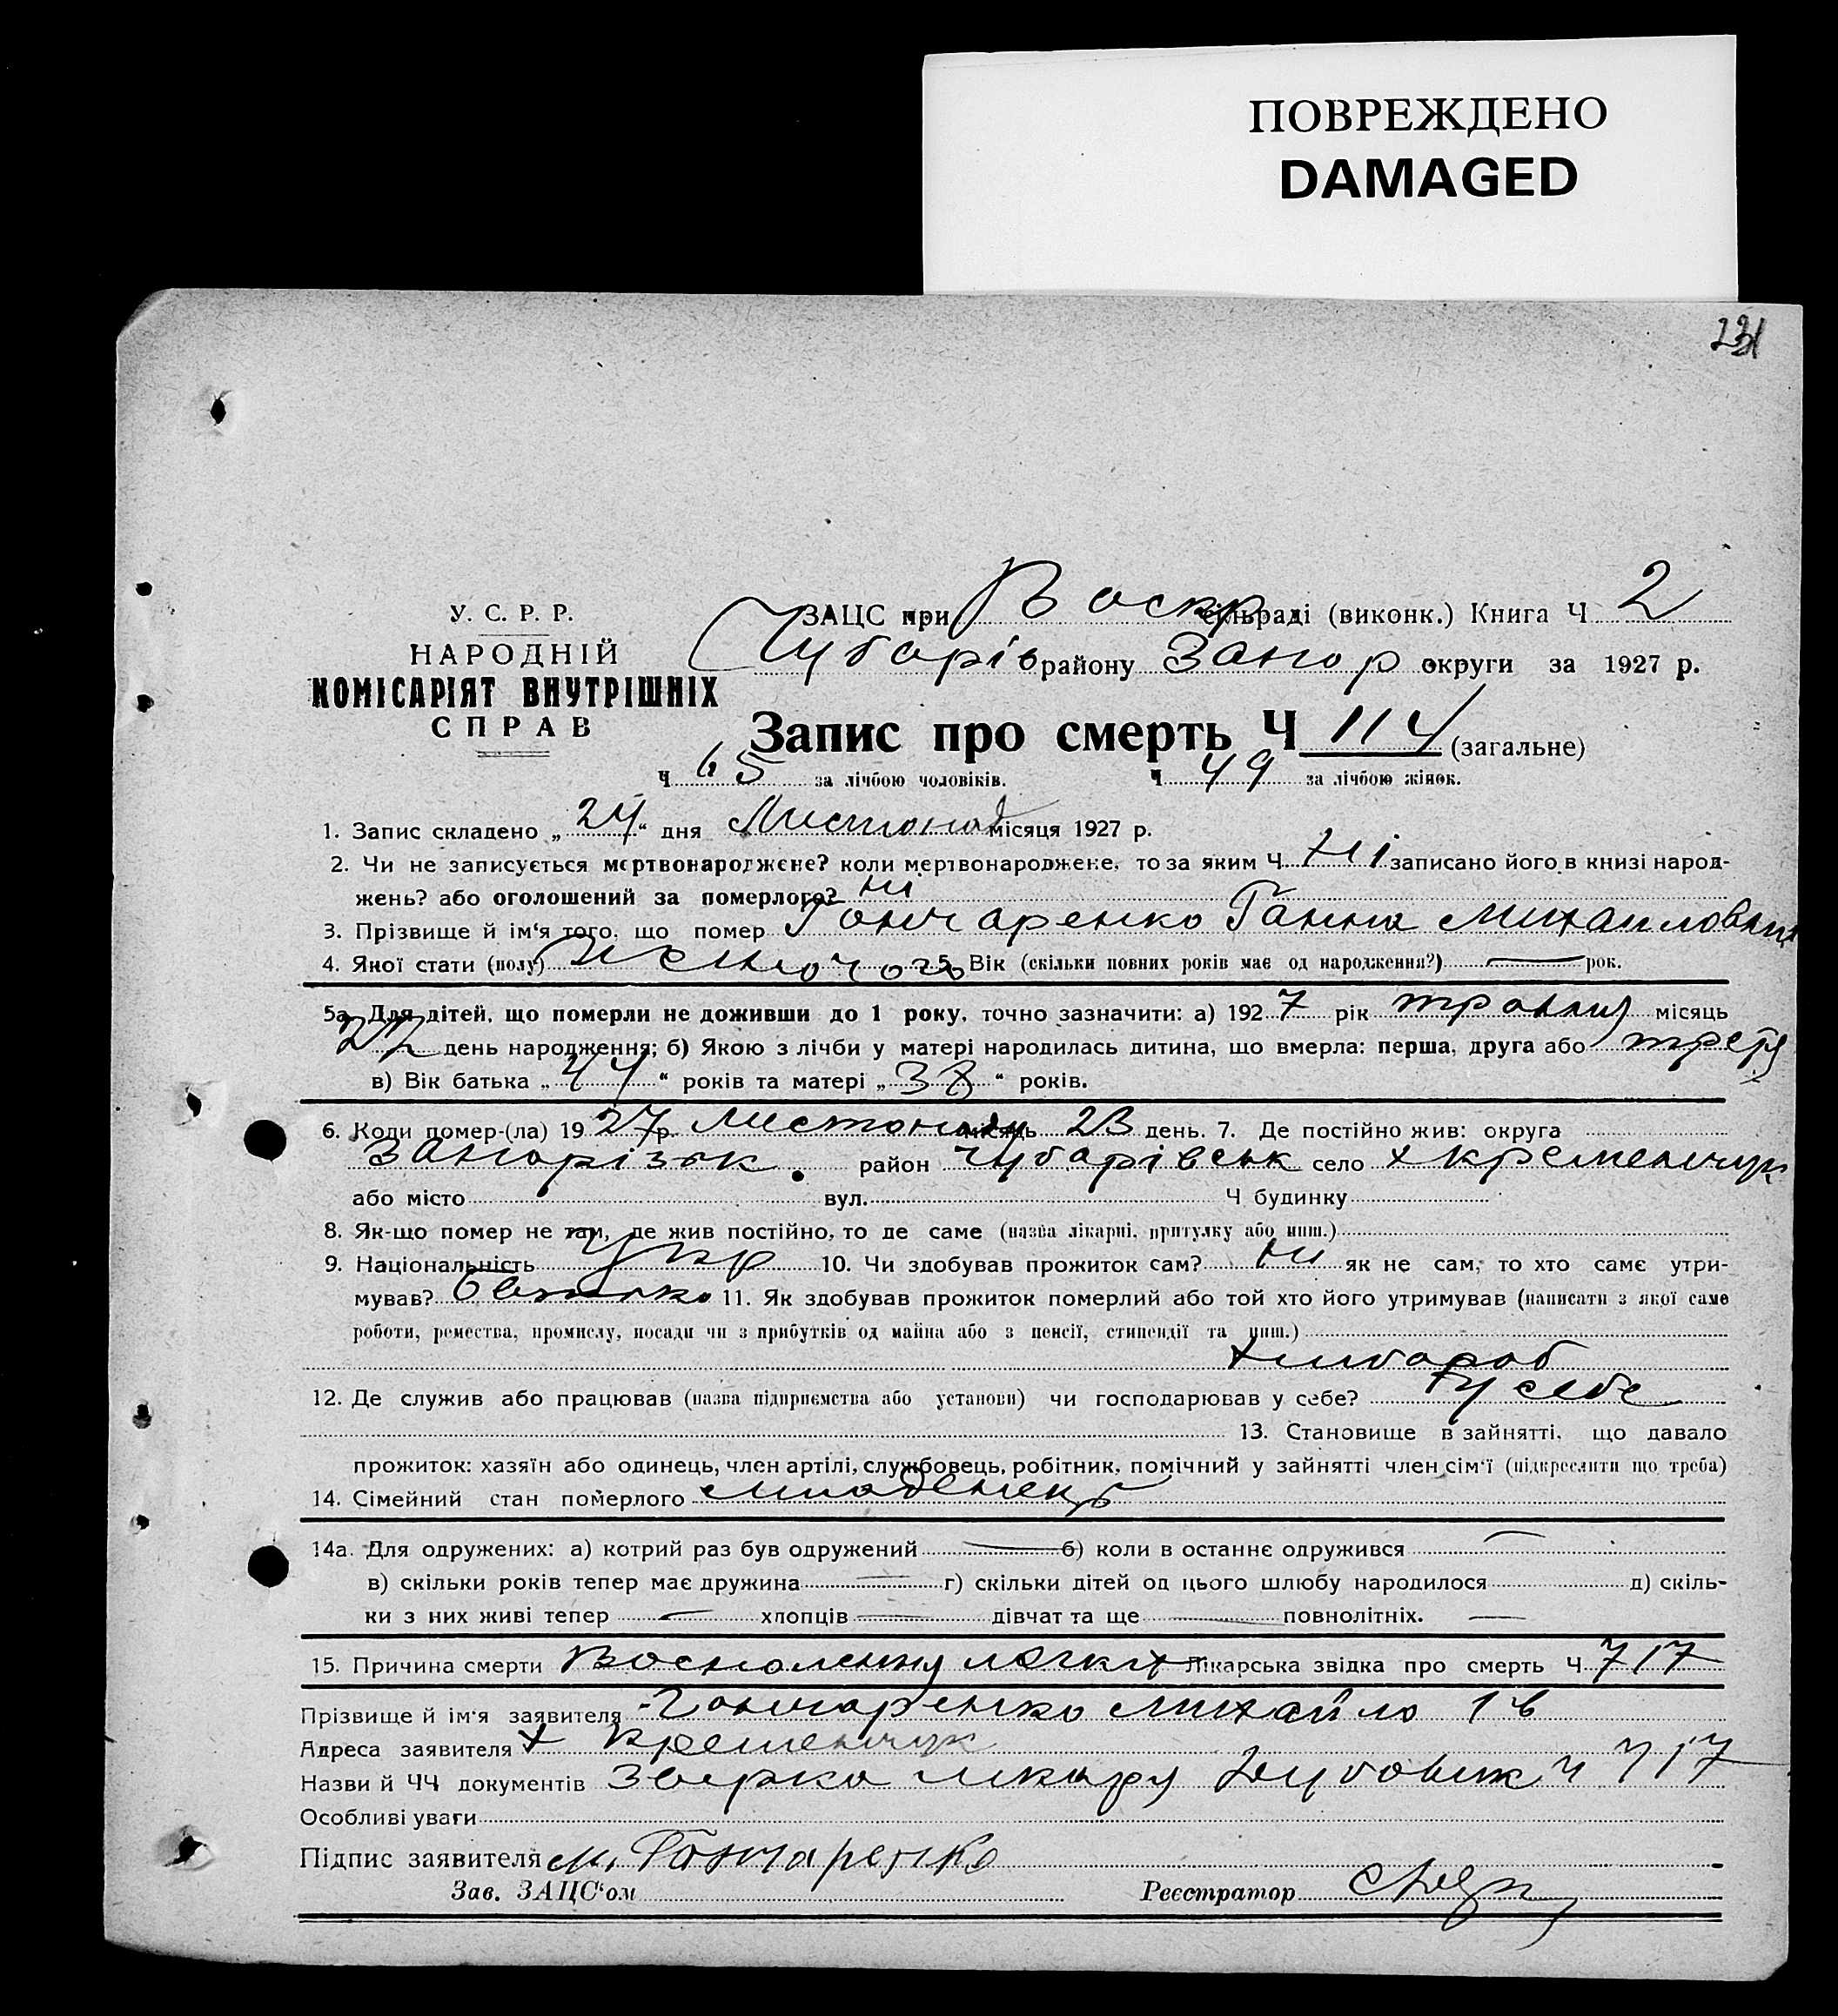 ПОВРЕЖДЕНО
DAMAGED
231
У. С. Р. Р.
НАРОДНІЙ
КОМІСАРІЯТ ВНУТРІШНІХ
СПРАВ
ЗАЦС при Воскр сільраді (виконк.) Книга Ч 2
Чубарів району Запор округи за 1927 р.
Запис про смерть Ч 114 (загальне)
Ч 65 за лічбою чоловіків. Ч 49 за лічбою жінок.
1. Запис складено „24“ дня Листопад місяця 1927 р.
2. Чи не записується мертвонароджене? коли мертвонароджене, то за яким Ч Ні записано його в книзі народ-
жень? або оголошений за померлого? ні
3. Прізвище й ім'я того, що помер Гончаренко Ганна Михайловна
4. Якої стати (полу) Жіночого 5. Вік (скільки повних років має од народження?) — рок.
5а. Для дітей, що померли не доживши до 1 року, точно зазначити: а) 1927 рік травня місяць
22 день народження; б) Якою з лічби у матері народилась дитина, що вмерла: перша, друга або
в) Вік батька „44“ років та матері „38“ років.
6. Коли помер-(ла) 1927 р. Листопаду місяць 23 день. 7. Де постійно жив: округа
Запорізьк. район Чубарівськ село х Кременчук
або місто вул. Ч будинку
8. Як-що помер не там, де жив постійно, то де саме (назва лікарні, притулку або инш.)
9. Національність Укр 10. Чи здобував прожиток сам? ни як не сам, то хто саме утри-
мував? батько 11. Як здобував прожиток померлий або той хто його утримував (написати з якої саме
роботи, ремества, промислу, посади чи з прибутків од майна або з пенсії, стипендії та инш.)
хлібороб
12. Де служив або працював (назва підприємства або установи) чи господарював у себе? у себе
13. Становище в зайнятті, що давало
прожиток: хазяїн або одинець, член артілі, службовець, робітник, помічний у зайнятті член сім'ї (підкреслити що треба)
14. Сімейний стан померлого младенець
14а. Для одружених: а) котрий раз був одружений — б) коли в останнє одружився —
в) скільки років тепер має дружина — г) скільки дітей од цього шлюбу народилося д) скіль-
ки з них живі тепер — хлопців — дівчат та ще — повнолітніх. —
15. Причина смерти Воспаления легких Лікарська звідка про смерть Ч 717
Прізвище й ім'я заявителя Гончаренко Михайло
Адреса заявителя х Кременчук
Назви й ЧЧ документів лікаря ч 717
Особливі уваги
Підпис заявителя М. Гончаренко
Зав. ЗАЦС'ом Реєстратор